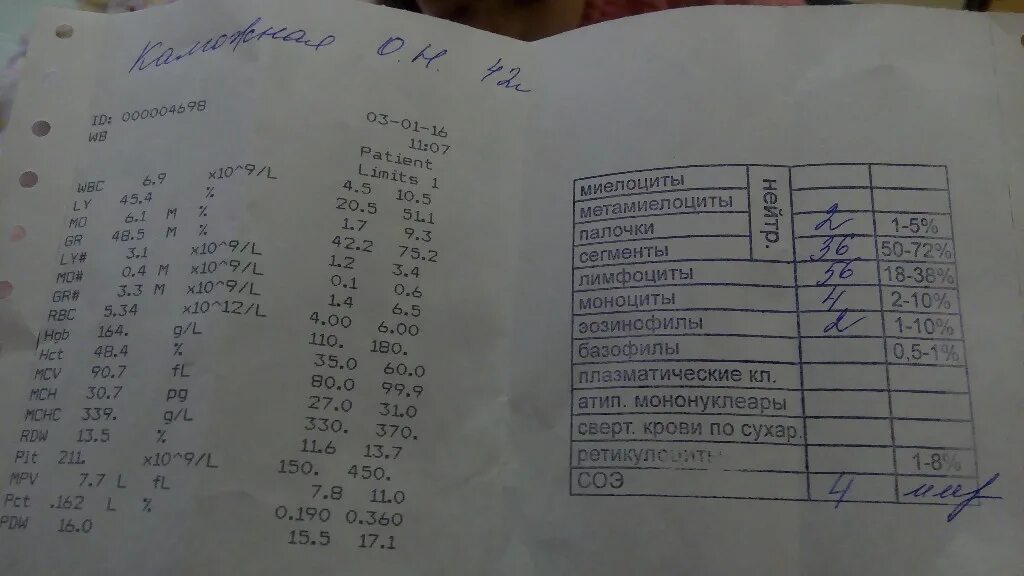 Каможная О.Н. 42г
ID: 000004698
WB
03-01-16
11:07
Patient
Limits 1
WBC 6.9 x10^9/L 4.5 10.5
LY 45.4 % 20.5 51.1
MO 6.1 M % 1.7 9.3
GR 48.5 M % 42.2 75.2
LY# 3.1 x10^9/L 1.2 3.4
MO# 0.4 M x10^9/L 0.1 0.6
GR# 3.3 M x10^9/L 1.4 6.5
RBC 5.34 x10^12/L 4.00 6.00
Hgb 164. g/L 110. 180.
Hct 48.4 % 35.0 60.0
MCV 90.7 fL 80.0 99.9
MCH 30.7 pg 27.0 31.0
MCHC 339. g/L 330. 370.
RDW 13.5 % 11.6 13.7
Plt 211. x10^9/L 150. 450.
MPV 7.7 L fL 7.8 11.0
Pct .162 L % 0.190 0.360
PDW 16.0 15.5 17.1
нейтр.
миелоциты
метамиелоциты
палочки 2 1-5%
сегменты 36 50-72%
лимфоциты 56 18-38%
моноциты 4 2-10%
эозинофилы 2 1-10%
базофилы 0,5-1%
плазматические кл.
атип. мононуклеары
сверт. крови по сухар.
ретикулоциты 1-8%
СОЭ 4